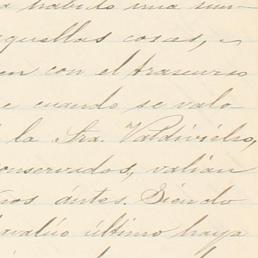 a habido una sun-
aquellas cosas, e
en con el trascurso
e cuando se valo
la Sra. Valdivielso,
onservados, valían
ños ántes. Siendo
avalúo último haya